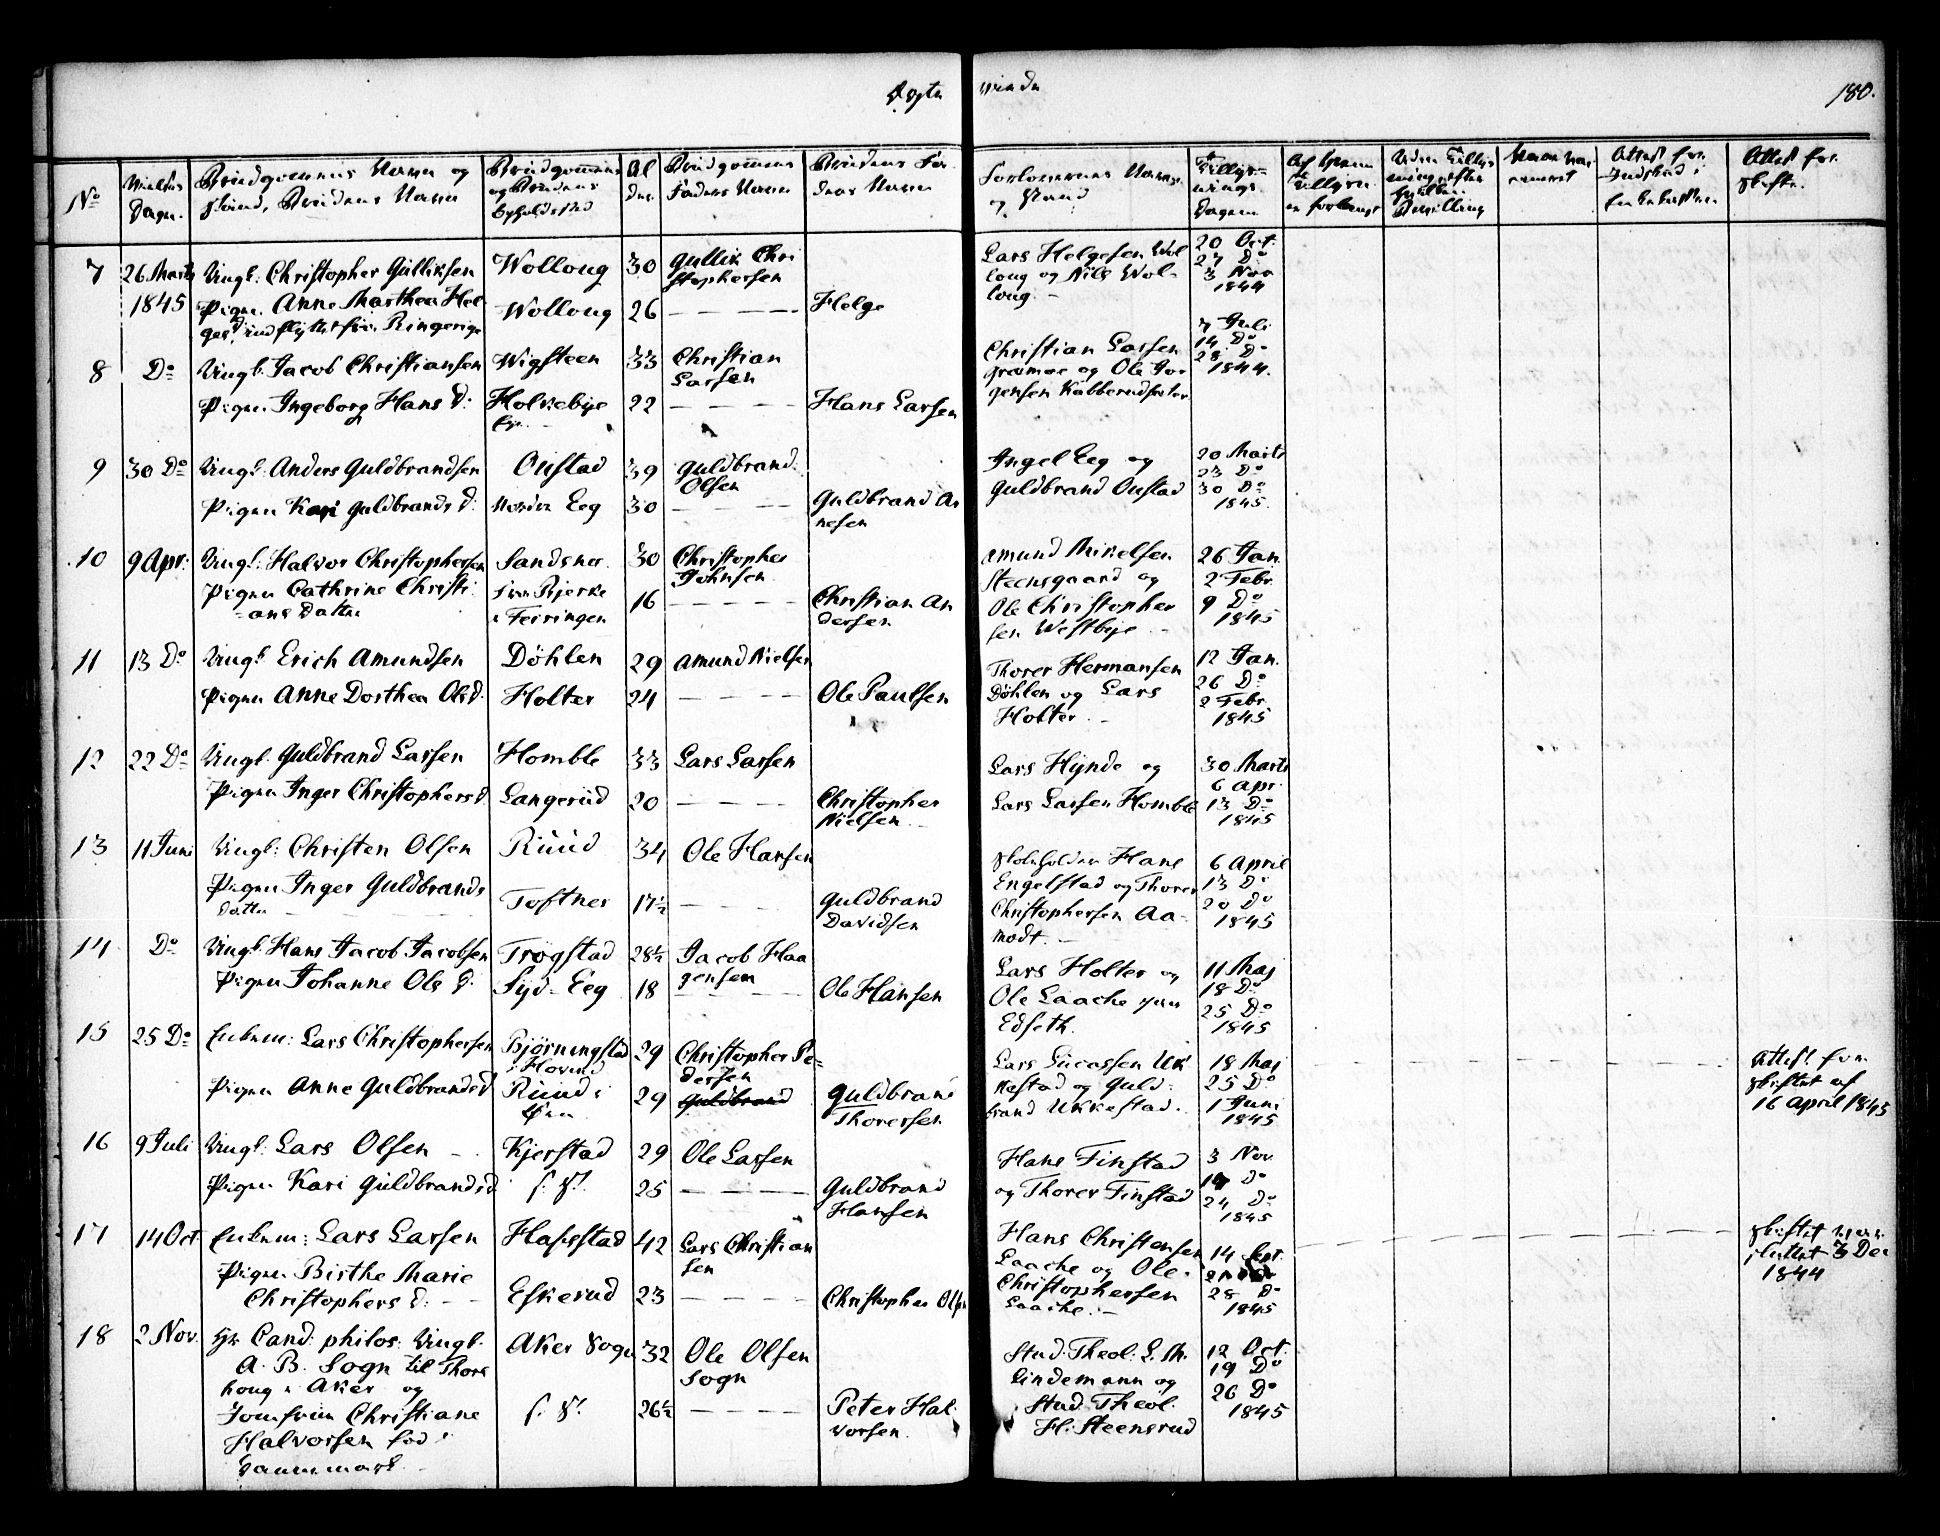 Ægte
viede
180.
No
Vielses
Dagen.
Brudgommens Navn og
Stand, Brudens Navn
Brudgommens
og Brudens
Opholdsted
Al
der.
Brudgommens
Faders Navn
Brudens Fa-
ders Navn
Forlovernes Navne
og Stand
Tillys-
nings
Dagene
Attest for
Skifte.
7 26 Marts Ungk: Christopher Gulliksen Wolloug 30 Gullik Chri
stophersen
1845 Pigen Anne Marthea Hel Wolloug 26 — — — — Helge
ges D. indflyttet fra Ringerige
Lars Helgesen Wol
loug og Nils Wol-
loug. -
20 Oct.
27 Do
3 Nov
1844
8 Do Ungk. Jacob Christiansen Wigsteen 33 Christian
Larsen
Pigen Ingeborg Hans D: Holkebye 22 — — — — Hans Larsen
Eje
Christian Larsen
Grønmoe og Ole Jør
gensen Kabberudsæter
7 Juli
14 Do
28 Do
1844.
9 30 Do Ungk. Anders Guldbrandsen Oustad 39 Guldbrand
Olsen
Pigen Kari Guldbrands D: Nordre Eeg 30 — — — Guldbrand Ar
nesen
Ingel Eeg og
Guldbrand Oustad
20 Marts
23 Do
30 Do
1845.
10 9 Apr: Ungk: Halvor Christophersen Sandsnes 30 Christopher
Johnsen
Pigen Cathrine Christi
ans Datter
fra Bjerke
i Feiringen
16 — — — — Christian An
dersen
Amund Mikelsen
Steensgaard og
Ole Christopher
sen Westbye -
26 Jan.
2 Febr.
9 Do
1845
11 13 Do Ungk. Erich Amundsen Döhlen 29 Amund Nielsen
Pigen Anne Dorthea Ols D. Holter 24 — — — Ole Paulsen
Thorer Hermansen
Döhlen og Lars
Holter. -
12 Jan.
26 Do
2 Febr.
1845
12 22 Do Ungk. Guldbrand Larsen Homble 33 Lars Larsen
Pigen Inger Christophers D. Langerud 20 — — — Christopher
Nielsen
Lars Hynde og
Lars Larsen Homble
30 Marts
6 Apr.
13 Do
1845
13 11 Juni Ungk: Christen Olsen Ruud 34 Ole Hansen
Pigen Inger Guldbrands
datter
Toftner 17½ — — — Guldbrand
Davidsen
Skoleholder Hans
Engelstad og Thorer
Christophersen Aa-
modt. -
6 April
13 Do
20 Do
1845
14 Do Ungk. Hans Jacob Jacobsen Trøgstad 28½ Jacob Haa
gensen
Pigen Johanne Ols D. Syd-Eeg 18 — — — — Ole Hansen
Lars Holter og
Ole Laache paa
Edseth.
11 Maj
18 Do
25 Do
1845
15 25 Do Enkem: Lars Christophersen Bjørningstad
i Hovind
29 Christopher Pe-
dersen
Pigen Anne Guldbrandsd Ruud i
Øen
29 Guldbrand Guldbrand
Thorersen
Lars Lucassen Uk
kestad og Guld-
brand Ukkestad.
18 Maj
25 Do
1 Juni
1845
Attest for
skiftet af
16 April 1845
16 9 Juli Ungk: Lars Olsen - Kjerstad 29 Ole Larsen
Pigen Kari Guldbrandsd S. St. 25 — — — Guldbrand
Hansen
Hans Finstad
og Thorer Finstad
3 Nov
Do
24 Do
1845
17 14 Oct Enkem: Lars Larsen Hafstad 42 Lars Christian
sen
Pigen Birthe Marie
Christophers D: - -
Eskerud 23 — — — Christopher Olsen
Hans Christensen
Laache og Ole
Christophersen
Laache. -
14
28 Do
1845
3 Dec
1844
18 2 Nov. Hr. Cand: philos: Ungk.
A. B. Sogn til Thors
houg i Aker og
Jomfrue Christiane
Halvorsen fød i
Dannemark -
Aker Sogn 32 Ole Olsen
Sogn
S. St. 26½ — — — — Peter Hal
vorsen.
Stud. Theol: L. M.
Lindemann og
Stud. Theol.
H. Steensrud
12 Oct.
19 Do
26 Do
1845